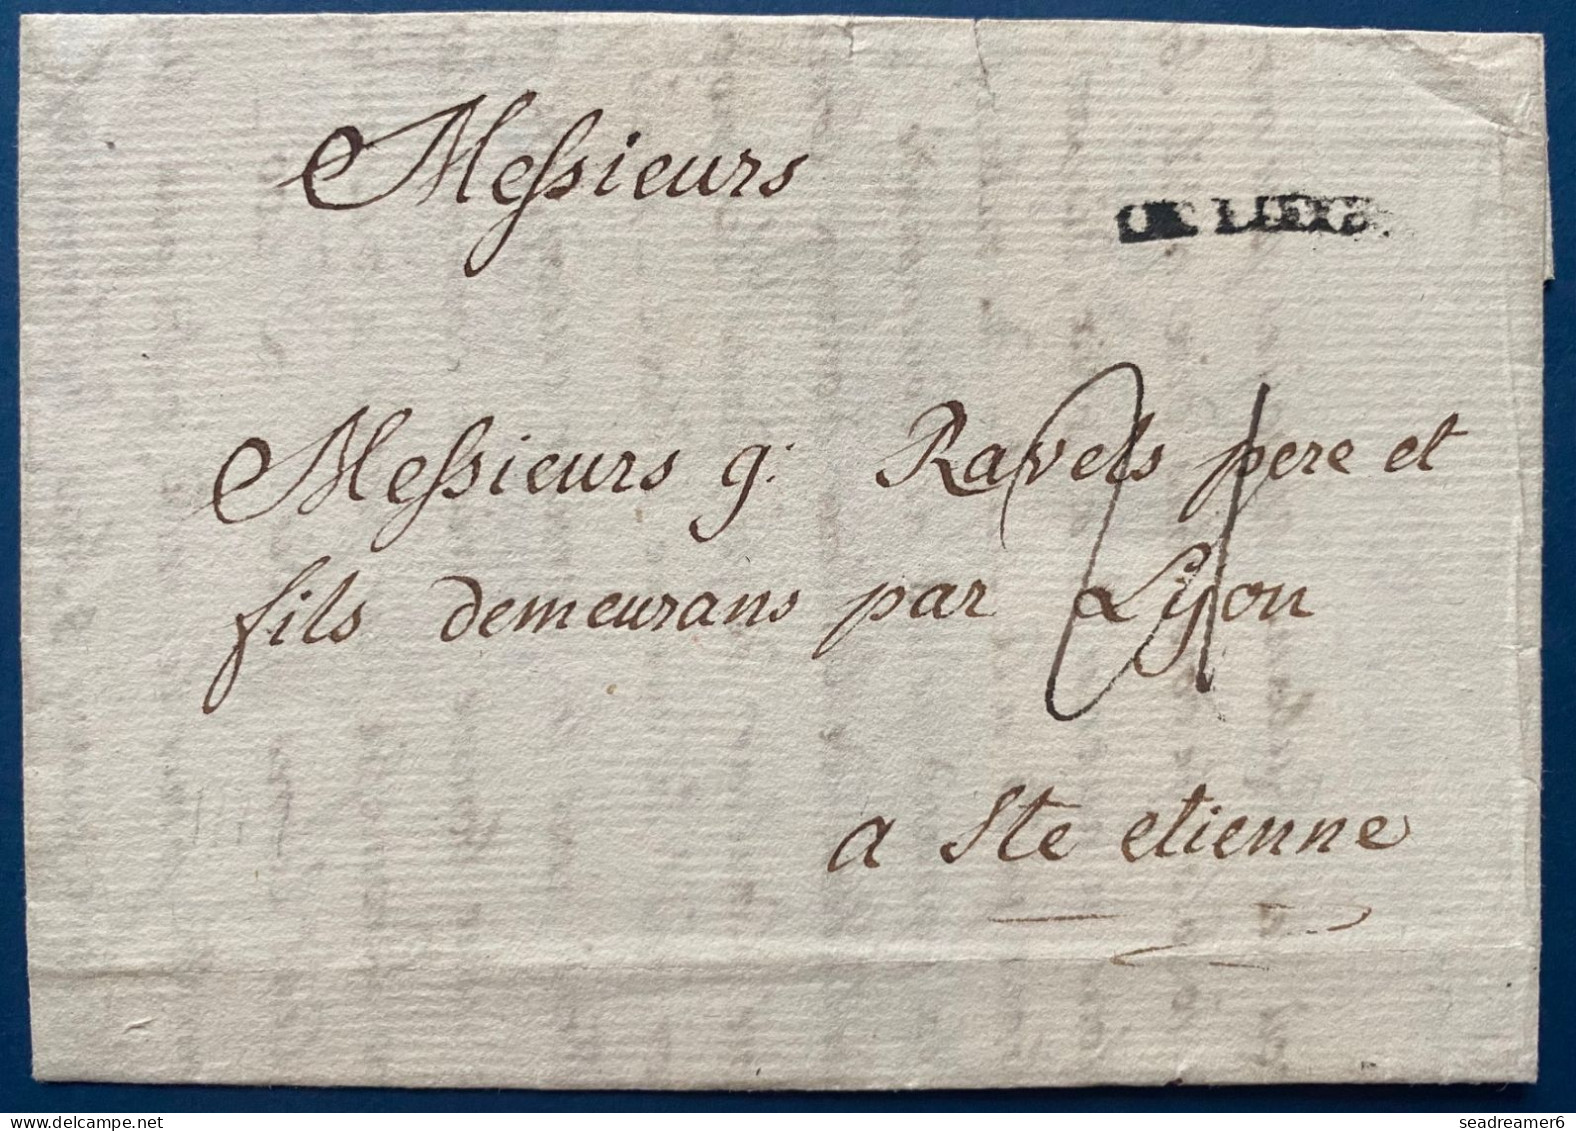 Messieurs
DE LIEGE
Messieurs g: Ravels pere et
fils demeurans par Lyon
24
a Ste etienne
delcampe.net
seadreamer6